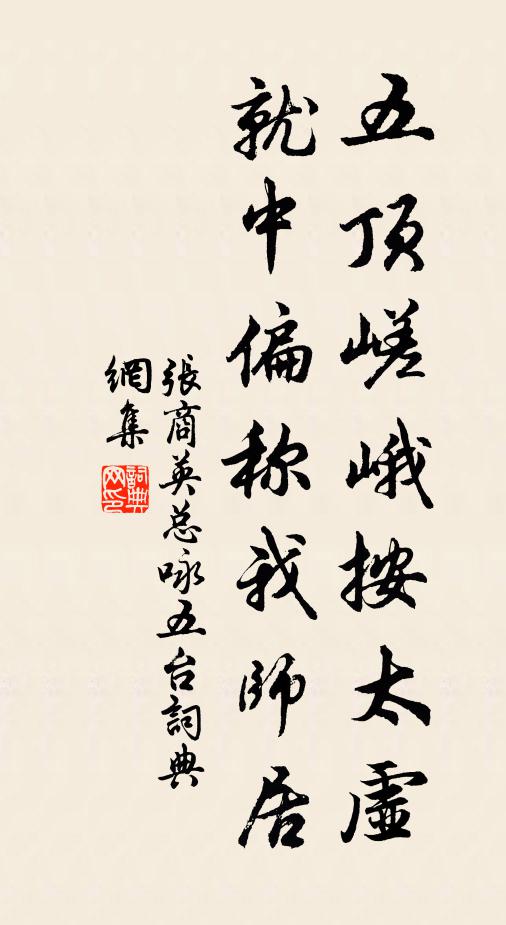 五顶嵯峨按太虚
就中偏称我師居
張商英总咏五台詞典
網集
詞典
网印